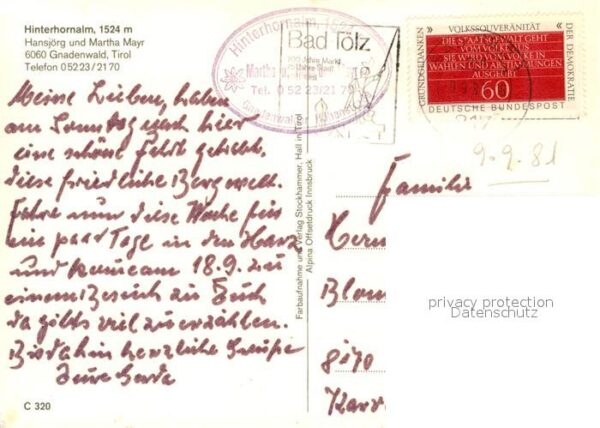 Hinterhornalm, 1524 m
Hansjörg und Martha Mayr
6060 Gnadenwald, Tirol
Telefon 05223/2170
Hinterhornalm, 1524
Martha
Tel. 05223/2170
Gnadenwald
Bad Tölz
GRUNDGEDANKEN
VOLKSSOUVERÄNITÄT
DER DEMOKRATIE
DIE STAATSGEWALT GEHT
VOM VOLKE AUS
SIE WIRD VOM VOLKE IN
WAHLEN UND ABSTIMMUNGEN
AUSGEÜBT
60
DEUTSCHE BUNDESPOST
9.9.81
Meine Lieben, haben
am Sonntag nach hier
eine schöne Fahrt gehabt,
diese friedliche Bergwelt.
Fahre nun diese Woche für
ein paar Tage in den Harz
und komme am 18.9. zu
einem Besuch zu Euch
da gibts viel zu erzählen.
Bis dahin herzliche Grüße
Eure
Farbaufnahme und Verlag Stockhammer, Hall in Tirol
Alpina Offsetdruck Innsbruck
Familie
Herm
Blom
8170
privacy protection
Datenschutz
C 320